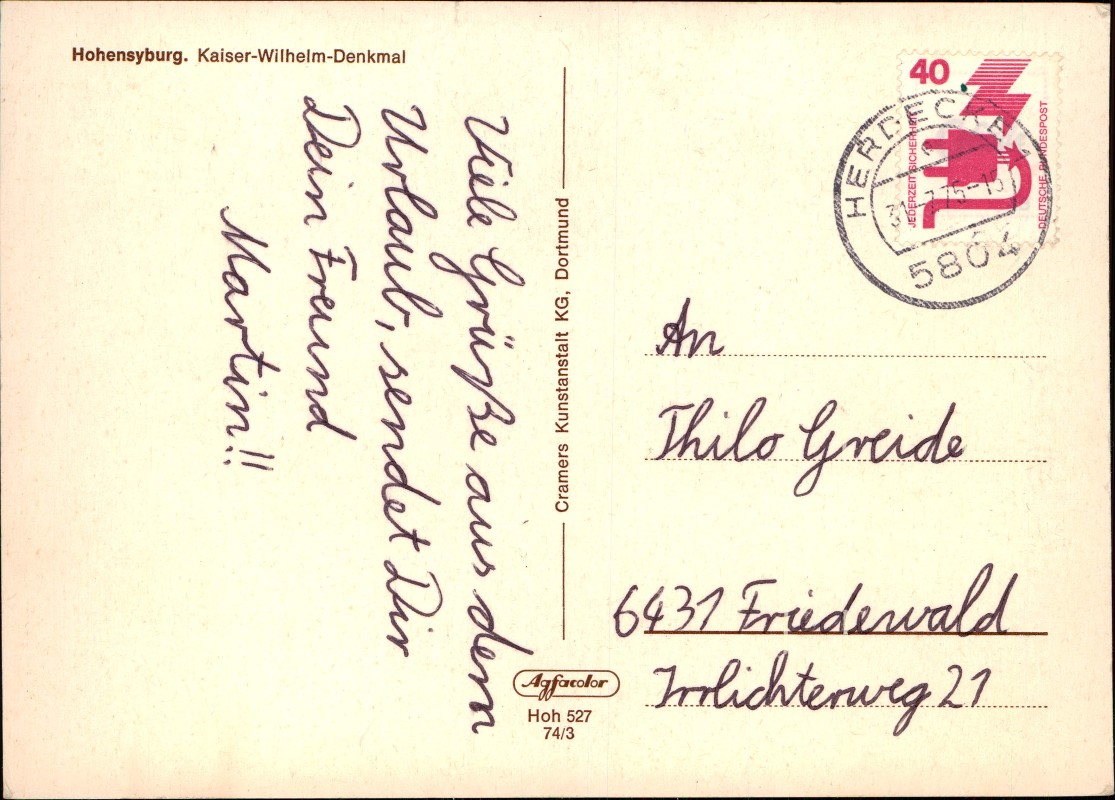 Hohensyburg. Kaiser-Wilhelm-Denkmal
Viele Grüße aus dem
Urlaub, sendet Dir
Dein Freund
Martin!!
Cramers Kunstanstalt KG, Dortmund
Agfacolor
Hoh 527
74/3
40
JEDERZEIT SICHERHEIT
DEUTSCHE BUNDESPOST
HERDECKE
5804
An
Thilo Greide
6431 Friedewald
Irrlichterweg 21